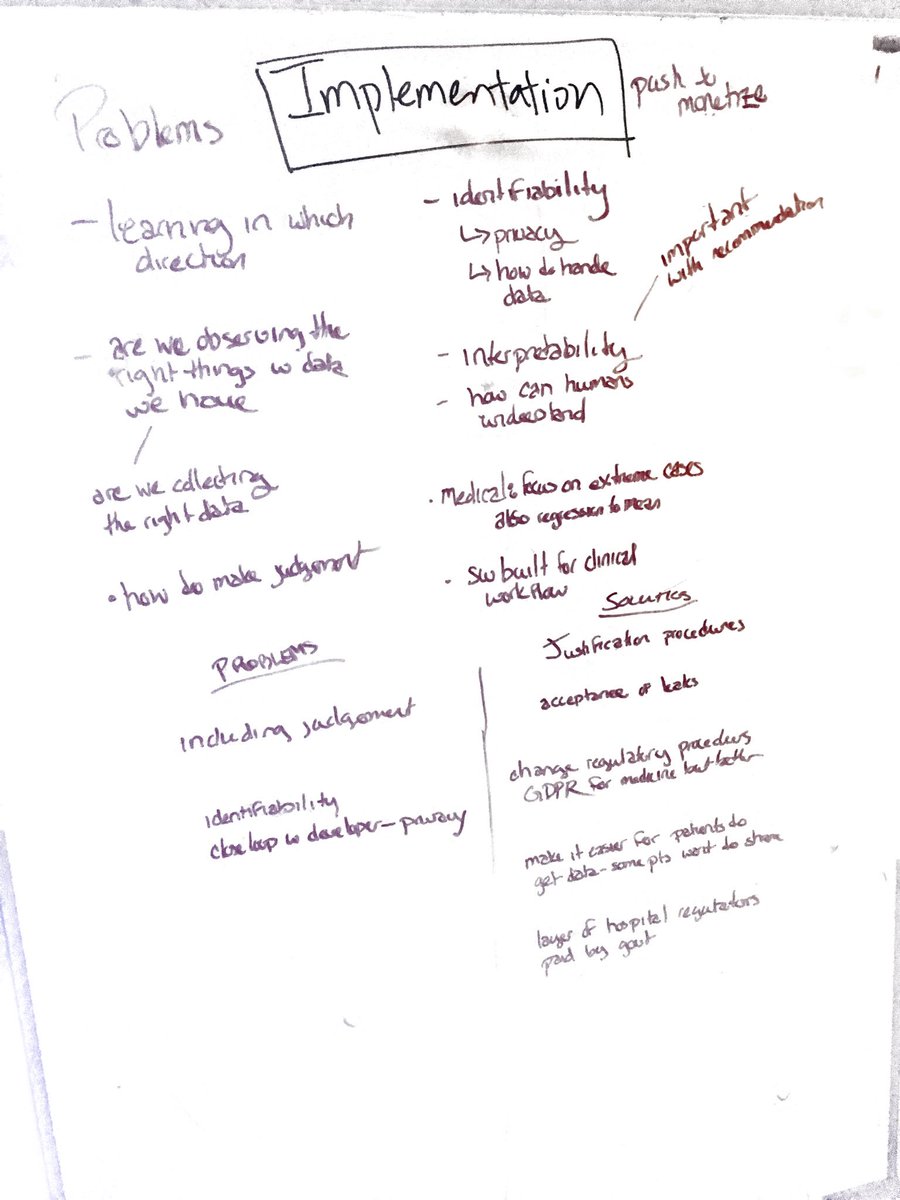 Implementation
push to
monetize
Problems
- learning in which
direction
- are we observing the
right things w data
we have
are we collecting
the right data
• how do make judgement
- identifiability
↳ privacy
↳ how do handle
data
important
with recommendation
- interpretability
- how can humans
understand
• Medical: focus on extreme cases
also regression to mean
• SW built for clinical
workflow
PROBLEMS
including judgement
identifiability
close loop w developer - privacy
Justification procedures
acceptance of leaks
change regulatory procedures
GDPR for medicine but better
make it easier for patients do
get data - some pts want do share
layer of hospital regulators
paid by govt